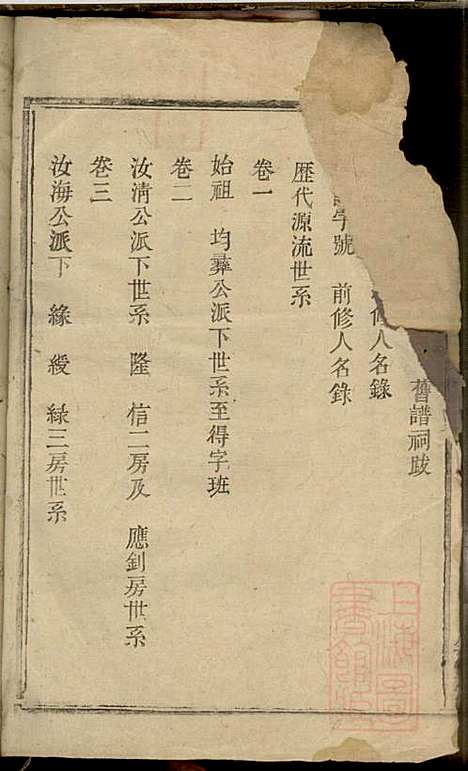 舊譜祠跋
修人名錄
字號　前修人名錄
歷代源流世系
卷一
始祖　均彞公派下世系至得字班
卷二
汝淸公派下世系　隆　信二房及　應釗房世系
卷三
汝海公派下　緣　綬　綠三房世系
上海圖書館藏